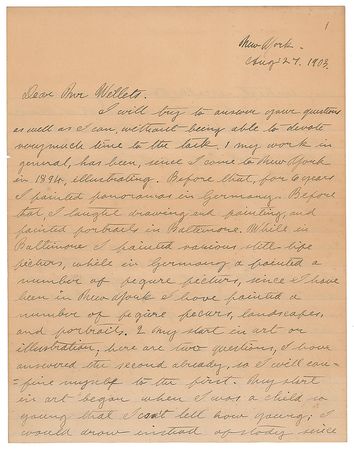 1
New York.
Aug 27. 1903.
Dear Mr Willets.
I will try to answer your questions
as well as I can, without being able to devote
very much time to the task. 1 My work in
general, has been, since I came to New York
in 1894, illustrating. Before that, for 6 years
I painted panoramas in Germany. Before
that, I taught drawing and painting, and
painted portraits in Baltimore. While in
Baltimore I painted various still-life
pictures, while in Germany I painted a
number of figure pictures, since I have
been in New York I have painted a
number of figure pieces, landscapes,
and portraits. 2 My start in art or
illustration; here are two questions, I have
answered the second already, so I will con-
=fine myself to the first. My start
in art began when I was a child so
young that I can't tell how young; I
would draw instead of study since